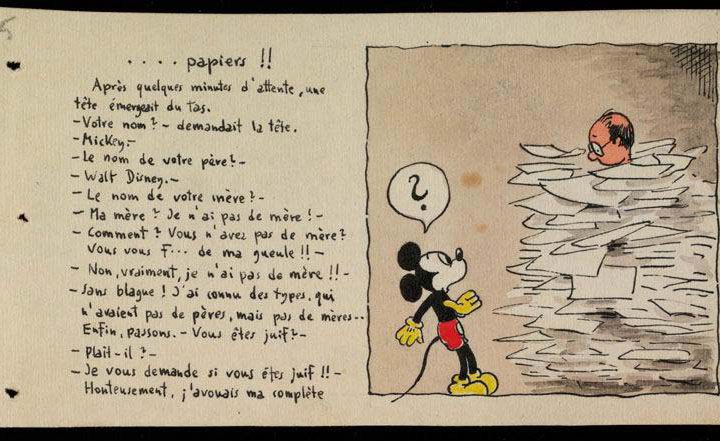 .... papiers !!
Après quelques minutes d'attente, une
tête émergeait du tas.
- Votre nom ? - demandait la tête.
- Mickey.-
- Le nom de votre père?-
- Walt Disney.-
- Le nom de votre mère?-
- Ma mère ? Je n'ai pas de mère !-
- Comment ? Vous n'avez pas de mère?
Vous vous F... de ma gueule !! -
- Non, vraiment, je n'ai pas de mère !! -
- Sans blague ! J'ai connu des types, qui
n'avaient pas de pères, mais pas de mères..
Enfin, passons. - Vous êtes juif?-
- Plait-il ?-
- Je vous demande si vous êtes juif !! -
Honteusement, j'avouais ma complète
?